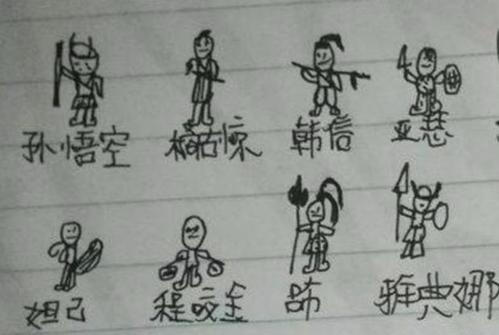 孙悟空 橘右惊 韩信 亚瑟
妲己 程咬金 吕布 雅典娜